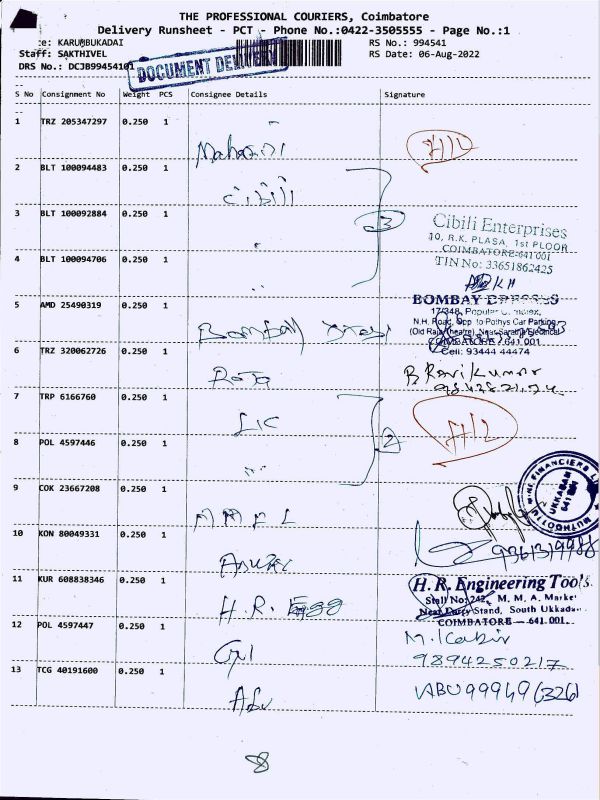 THE PROFESSIONAL COURIERS, Coimbatore
Delivery Runsheet - PCT - Phone No.:0422-3505555 - Page No.:1
ce: KARUMBUKADAI RS No.: 994541
Staff: SAKTHIVEL RS Date: 06-Aug-2022
DRS No.: DCJB99454101
DOCUMENT DELIVERY
S No Consignment No Weight PCS Consignee Details Signature
1 TRZ 205347297 0.250 1
2 BLT 100094483 0.250 1 Cibili
3 BLT 100092884 0.250 1 3
Cibili Enterprises
10, R.K. PLASA, 1st FLOOR
COIMBATORE-641 001
TIN No: 33651862425
4 BLT 100094706 0.250 1 "
BOMBAY
17/348, Popular
N.H. Road, Opp to Pothys Car Parking
(Old Raja Theatre), Near Sarathi Electrical
COIMBATORE - 641 001
Cell: 93444 44474
5 AMD 25490319 0.250 1 Bombay
6 TRZ 320062726 0.250 1 Roja B. Ravikumar
7 TRP 6166760 0.250 1 LIC
8 POL 4597446 0.250 1 " 2
9 COK 23667208 0.250 1
MUTHOOTTU MINI FINANCIERS
UKKADAM
641 001
10 KON 80049331 0.250 1
11 KUR 608838346 0.250 1 H.R. Engg
H.R. Engineering Tools
Stall No: 242, M. M. A. Market
Near Lorry Stand, South Ukkadam
COIMBATORE - 641 001.
12 POL 4597447 0.250 1 M. Kabir
9894250217
13 TCG 40191600 0.250 1
8